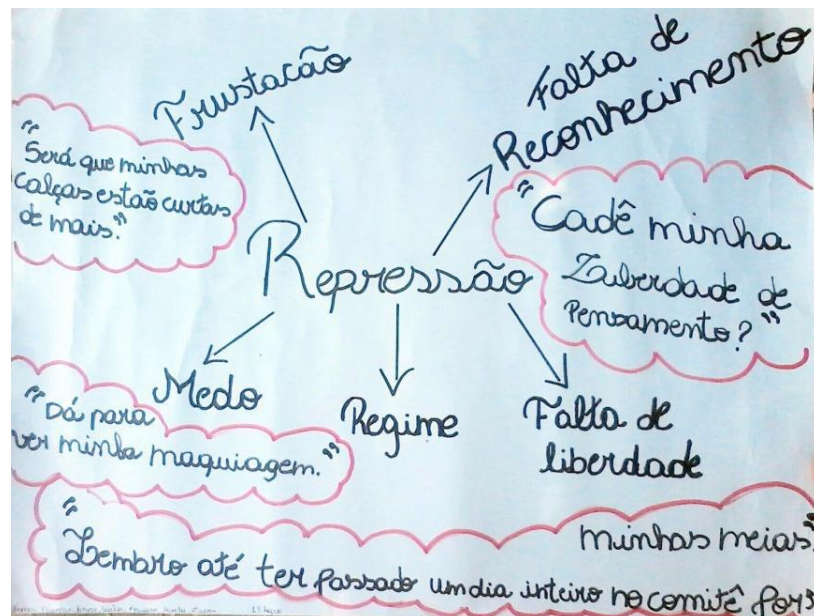 Frustacão
Falta de
Reconhecimento
"Será que minhas
calças estão curtas
de mais."
"Cadê minha
Luberdade de
Pensamento?"
Repressão
Medo
Regime
Falta de
liberdade
"Dá para
ver minha maquiagem."
minhas meias"
"Lembro até ter passado um dia inteiro no comitê por